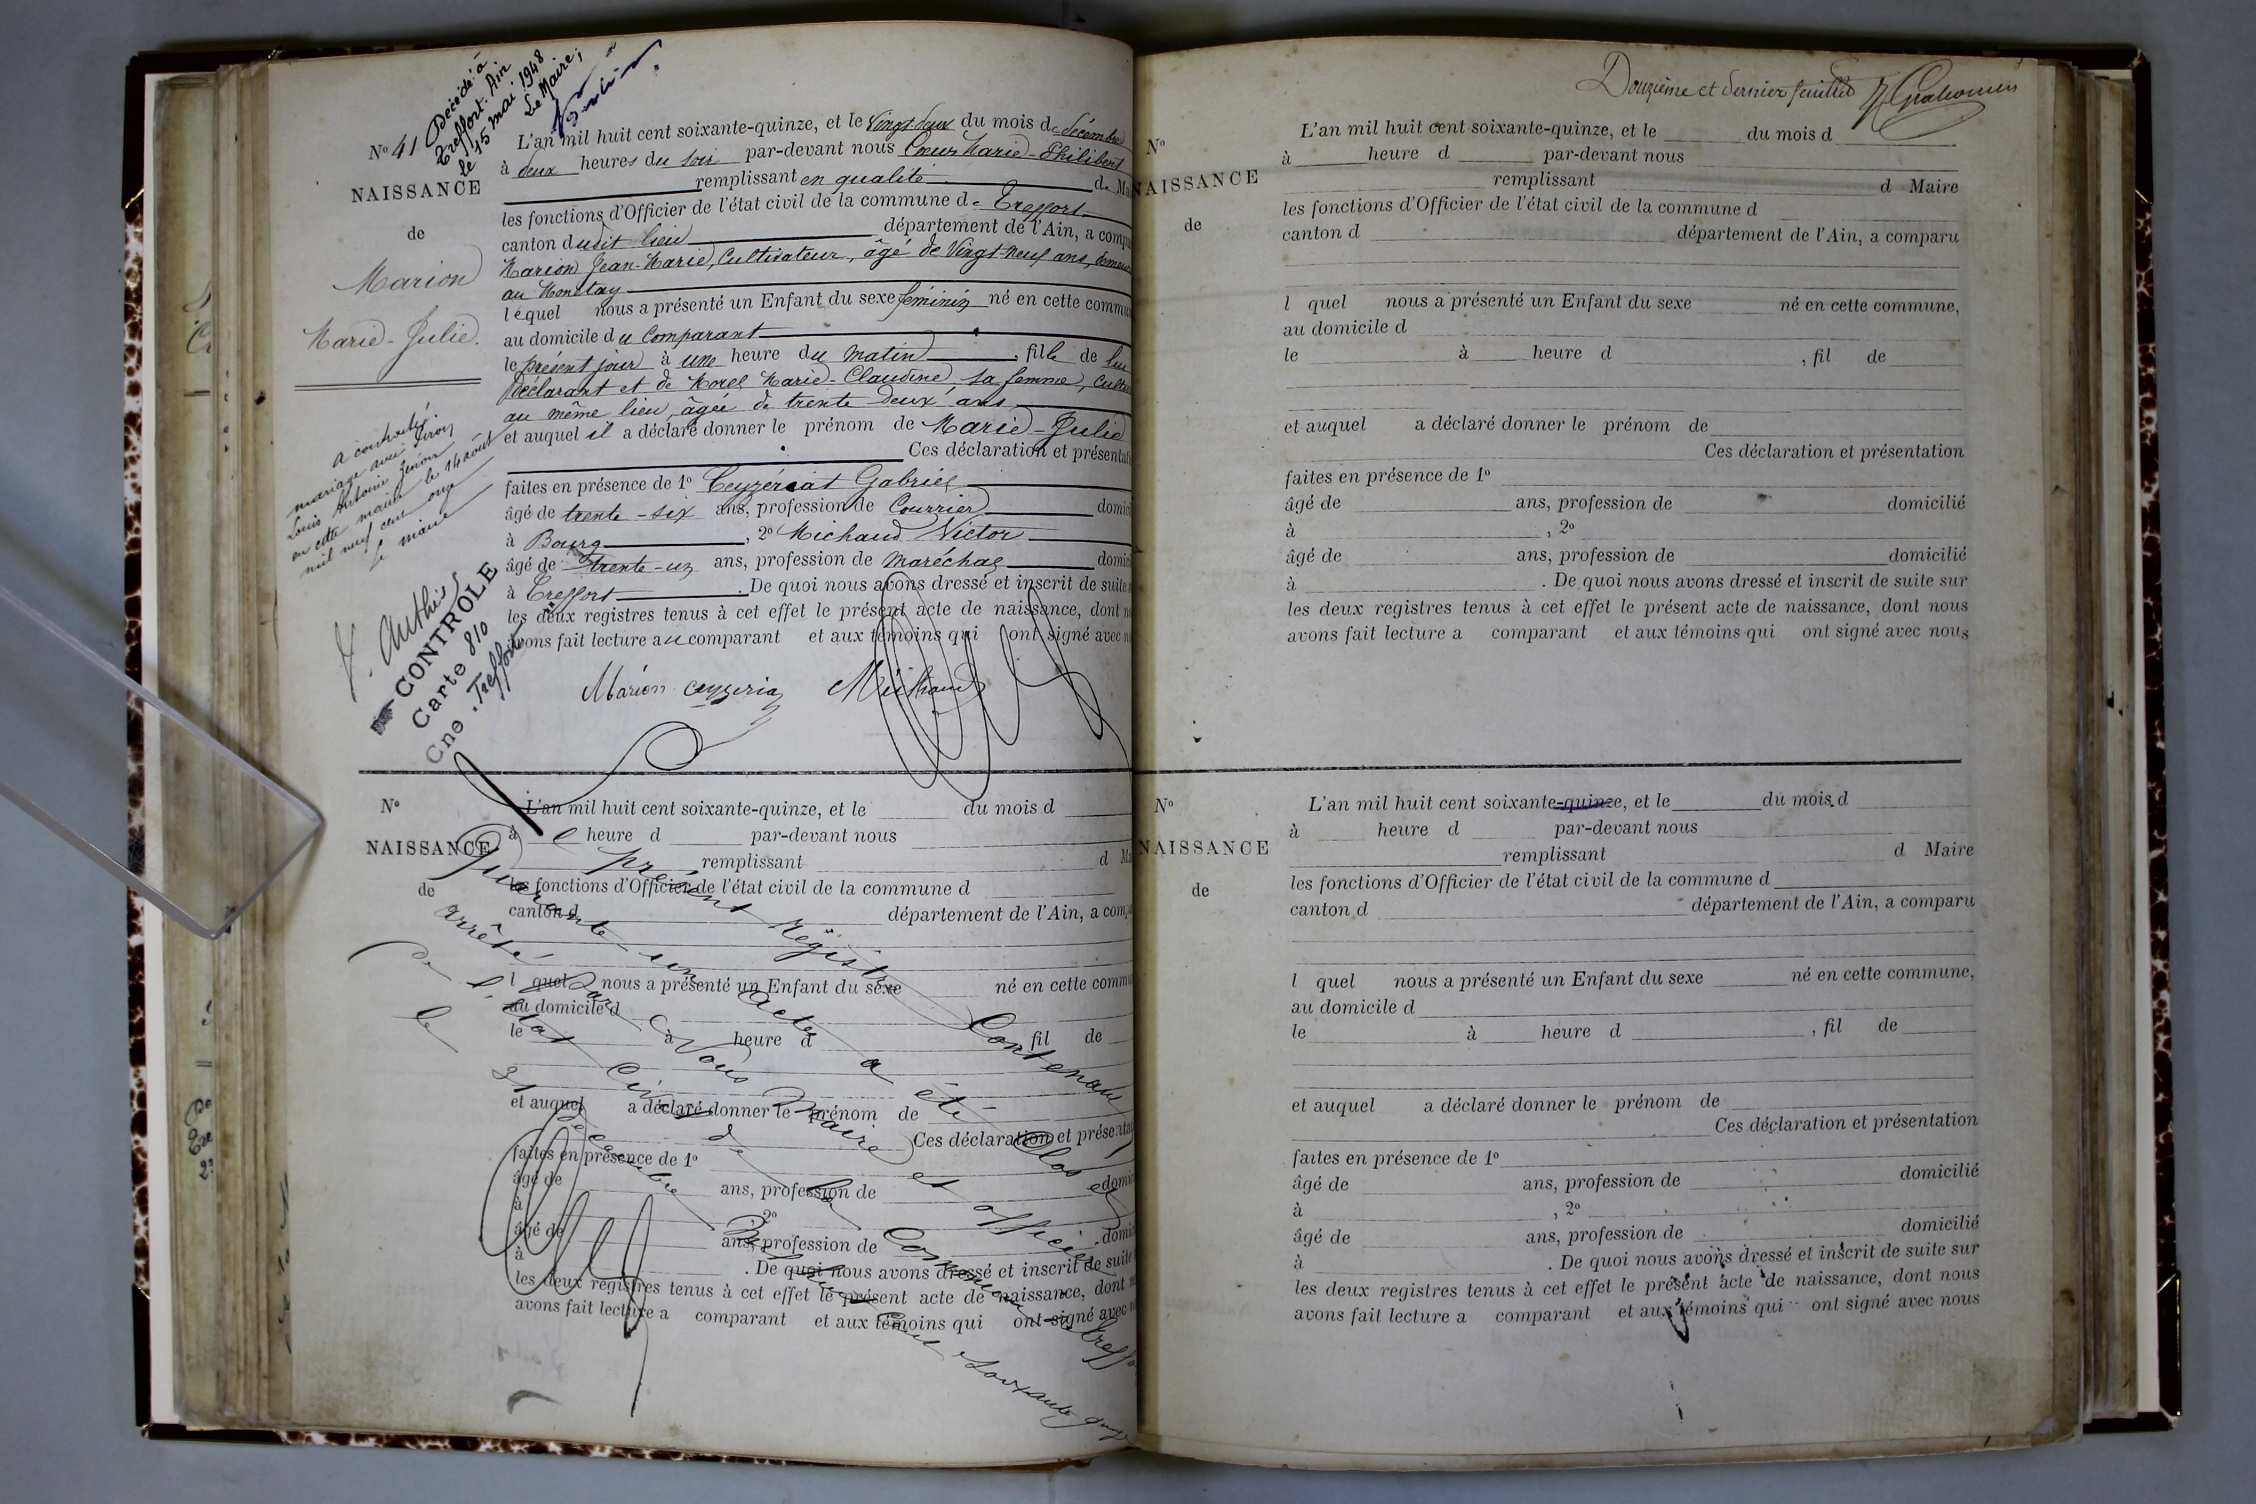 Décédé à
Treffort. Ain
le 15 mai 1948
Le Maire,
N° 41
NAISSANCE
de
Marion
Marie-Julie.
L'an mil huit cent soixante-quinze, et le Vingt deux du mois de décembre
à deux heures du soir par-devant nous Cœur Marie-Philibert
remplissant en qualité de Ma
les fonctions d'Officier de l'état civil de la commune de Treffort
canton dudit lieu département de l'Ain, a compa
Marion Jean-Marie, Cultivateur, âgé de Vingt-neuf ans, demeu
au Monetay
lequel nous a présenté un Enfant du sexe féminin né en cette commu
au domicile du Comparant
le présent jour à une heure du matin, fille de lui
Déclarant et de Morel Marie-Claudine, sa femme, Culti
au même lieu, âgée de trente deux ans
et auquel il a déclaré donner le prénom de Marie-Julie
Ces déclaration et présentati
faites en présence de 1° Ceyzériat Gabriel
âgé de trente-six ans, profession de Courrier domici
à Bourg, 2° Michaud Victor
âgé de trente-un ans, profession de maréchal domici
à Treffort. De quoi nous avons dressé et inscrit de suite
les deux registres tenus à cet effet le présent acte de naissance, dont n
avons fait lecture au comparant et aux témoins qui ont signé avec n
Marion Ceyzeriat Michaud
a contracté
mariage avec
Louis Antoine
en cette mairie le 14 août
mil neuf cent onze
le maire
CONTROLE
Carte 810
Cne. Treffort
N°
NAISSANCE
de
L'an mil huit cent soixante-quinze, et le du mois d
à heure d par-devant nous
remplissant d Ma
les fonctions d'Officier de l'état civil de la commune d
canton d département de l'Ain, a compa
l quel nous a présenté un Enfant du sexe né en cette commu
au domicile d
le à heure d fil de
et auquel a déclaré donner le prénom de
Ces déclaration et présenta
faites en présence de 1°
âgé de ans, profession de domici
à 2°
âgé de ans, profession de domici
à . De quoi nous avons dressé et inscrit de suite
les deux registres tenus à cet effet le présent acte de naissance, dont n
avons fait lecture a comparant et aux témoins qui ont signé avec n
Le présent Registre Contenant
Quarante-un actes a été Clos et
arrêté par Nous Maire et officier
de l'état Civil de la Commune de Treffort
le 31 Décembre Mil huit Cent soixante quinze
Douzième et dernier feuillet
N°
NAISSANCE
de
L'an mil huit cent soixante-quinze, et le du mois d
à heure d par-devant nous
remplissant d Maire
les fonctions d'Officier de l'état civil de la commune d
canton d département de l'Ain, a comparu
l quel nous a présenté un Enfant du sexe né en cette commune,
au domicile d
le à heure d , fil de
et auquel a déclaré donner le prénom de
Ces déclaration et présentation
faites en présence de 1°
âgé de ans, profession de domicilié
à , 2°
âgé de ans, profession de domicilié
à . De quoi nous avons dressé et inscrit de suite sur
les deux registres tenus à cet effet le présent acte de naissance, dont nous
avons fait lecture a comparant et aux témoins qui ont signé avec nous
N°
NAISSANCE
de
L'an mil huit cent soixante-quinze, et le du mois d
à heure d par-devant nous
remplissant d Maire
les fonctions d'Officier de l'état civil de la commune d
canton d département de l'Ain, a comparu
l quel nous a présenté un Enfant du sexe né en cette commune,
au domicile d
le à heure d , fil de
et auquel a déclaré donner le prénom de
Ces déclaration et présentation
faites en présence de 1°
âgé de ans, profession de domicilié
à , 2°
âgé de ans, profession de domicilié
à . De quoi nous avons dressé et inscrit de suite sur
les deux registres tenus à cet effet le présent acte de naissance, dont nous
avons fait lecture a comparant et aux témoins qui ont signé avec nous